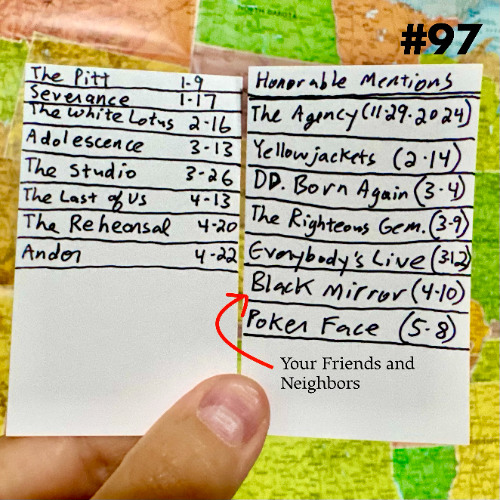 NORTH DAKOTA
#97
The Pitt 1-9
Severance 1-17
The White Lotus 2-16
Adolescence 3-13
The Studio 3-26
The Last of Us 4-13
The Rehearsal 4-20
Andor 4-22
Honorable Mentions
The Agency (11-29-2024)
Yellowjackets (2-14)
DD. Born Again (3-4)
The Righteous Gem. (3-9)
Everybody's Live (3-12)
Black Mirror (4-10)
Poker Face (5-8)
Your Friends and
Neighbors